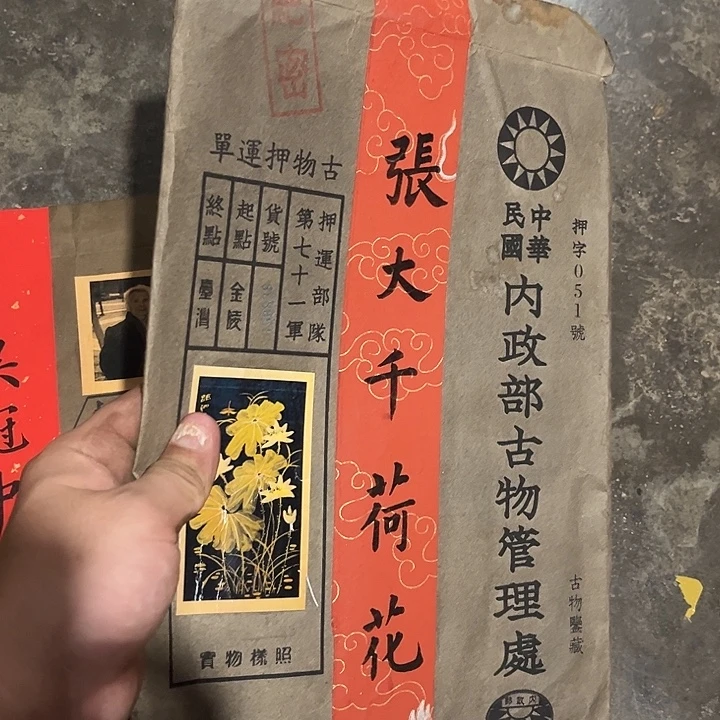 押字051號
中華
民國
內政部古物管理處
古物鑒藏
內政部
張大千荷花
絕密
古物押運單
押運部隊
第七十一軍
貨號
起點 金陵
終點 臺灣
實物樣照